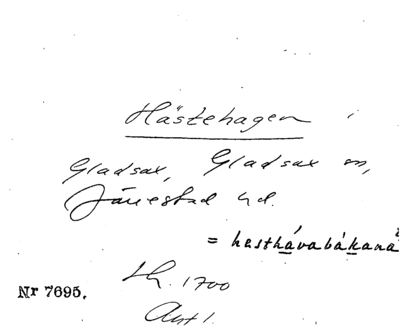 Hästehagen
Gladsax, Gladsax sn,
Järrestad hd.
= hesthávabákana
Nr 7695.
1700